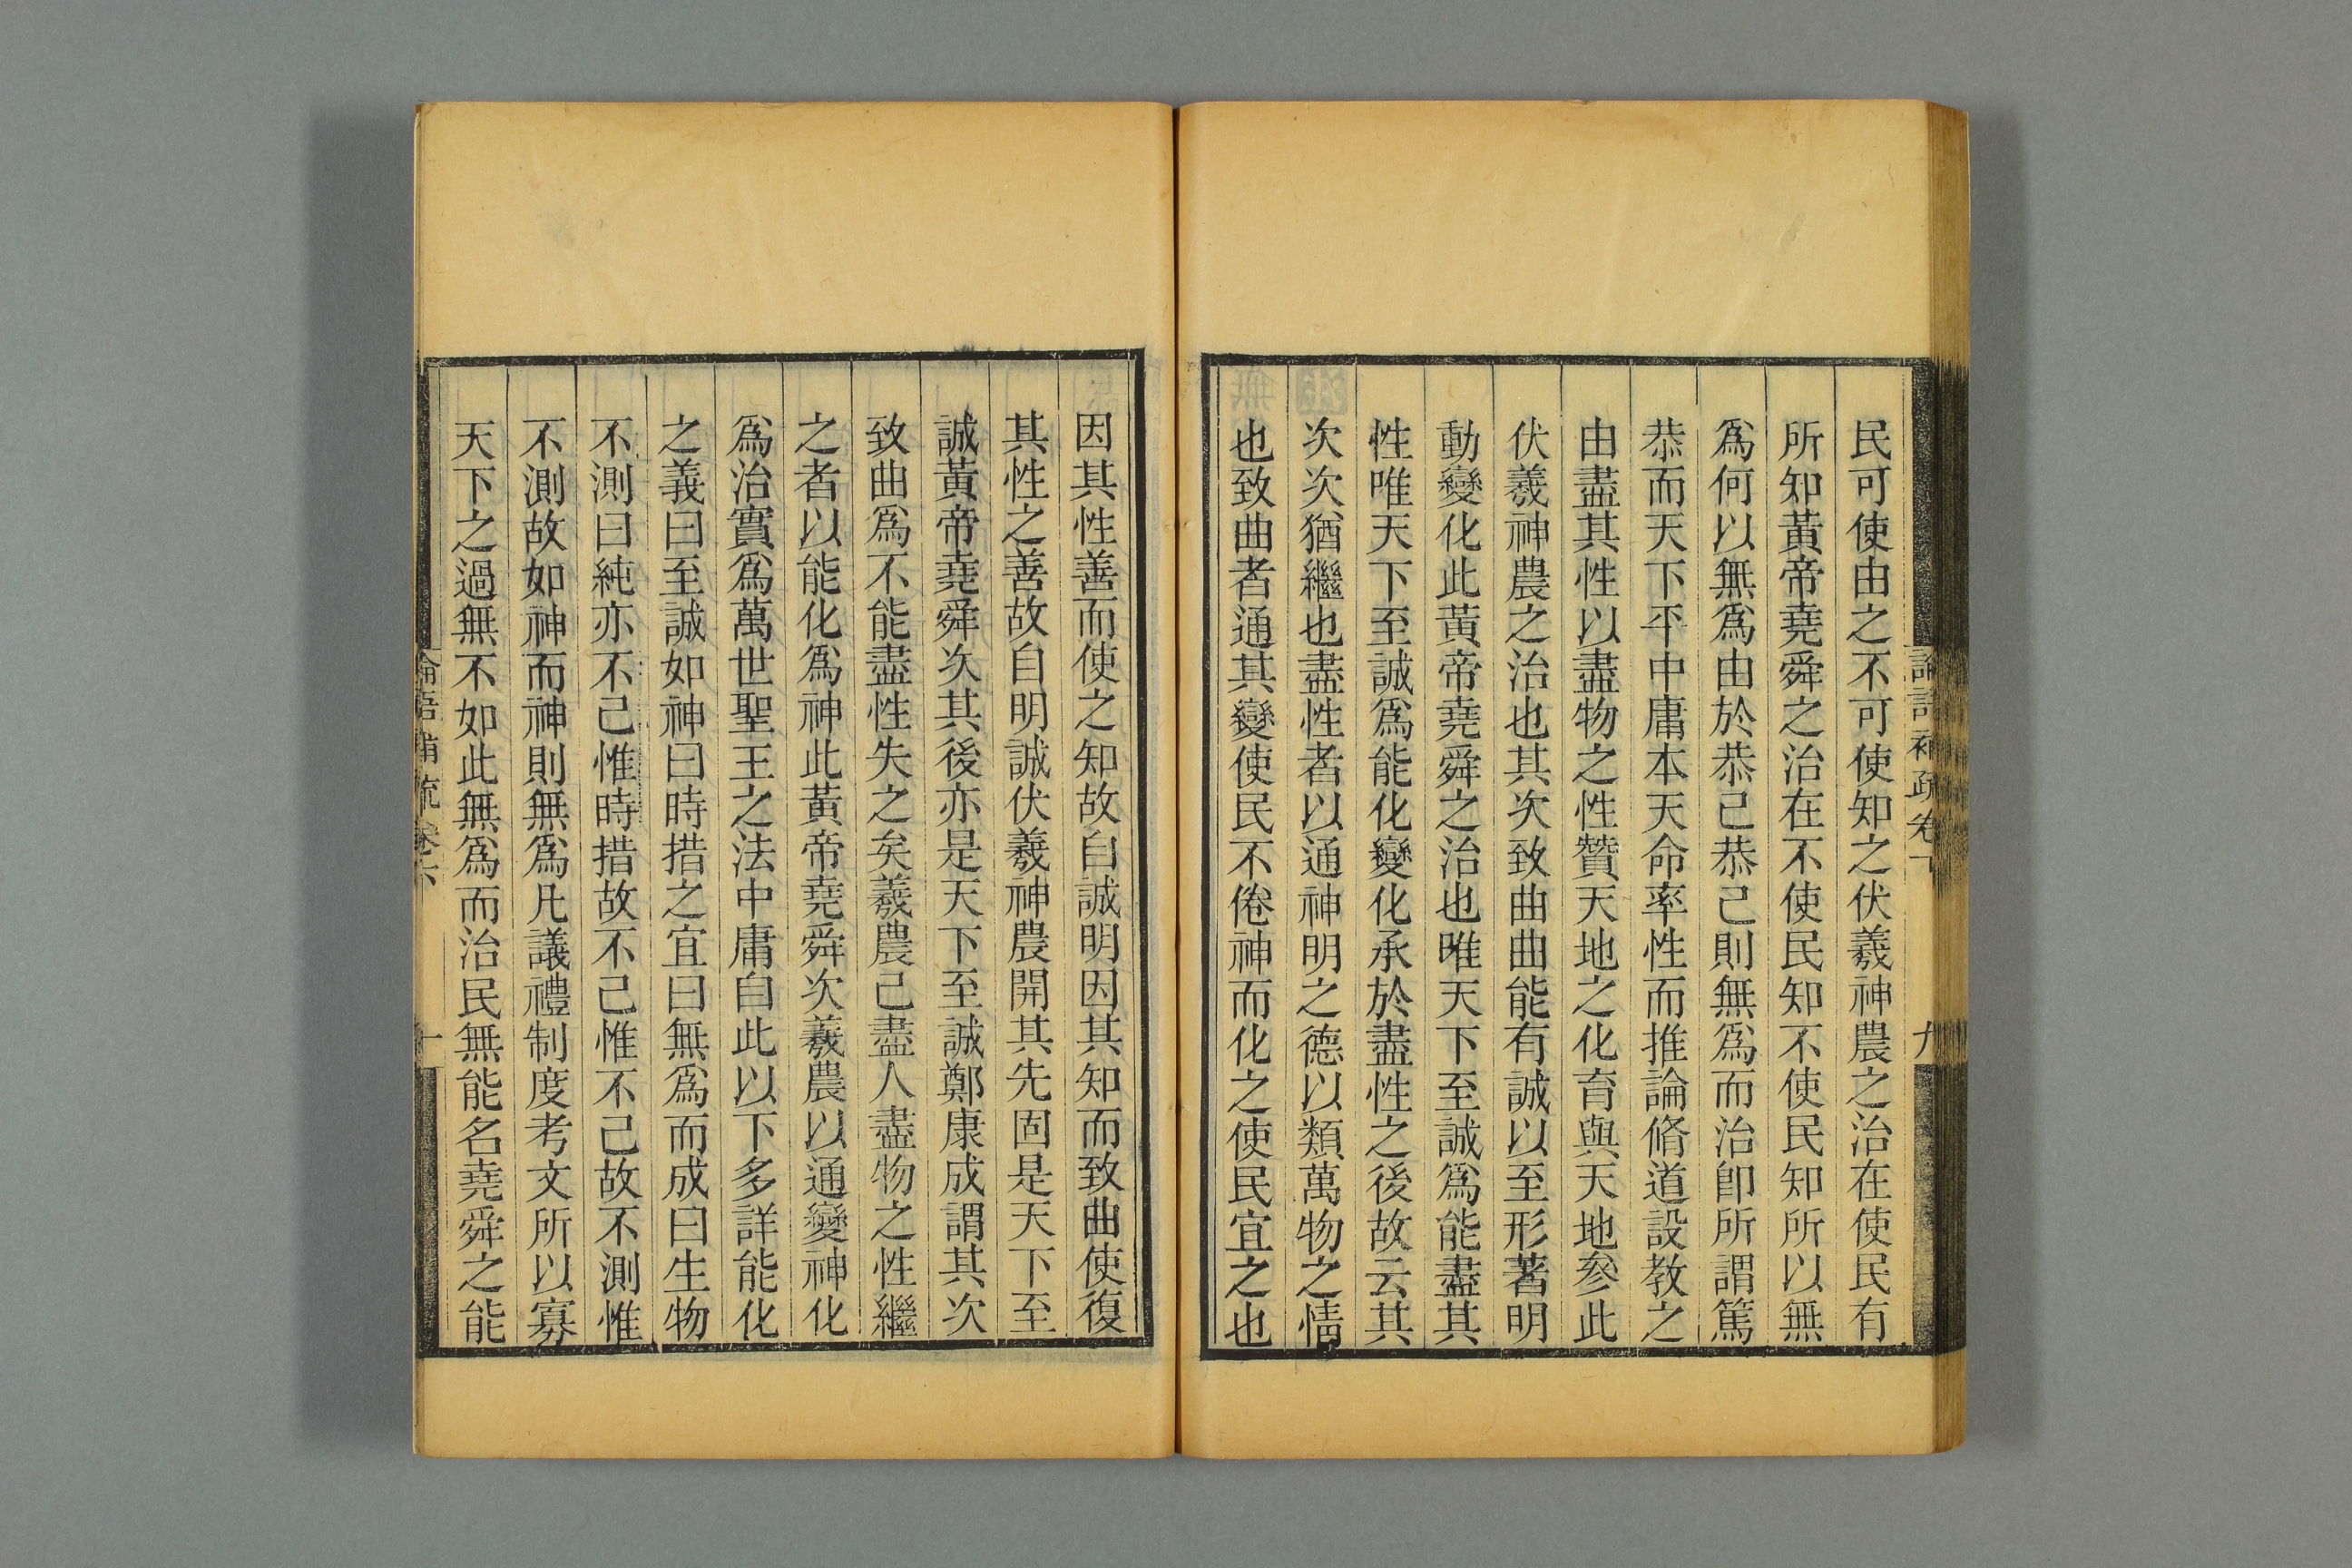 論語補疏卷下
九
民可使由之不可使知之伏羲神農之治在使民有
所知黃帝堯舜之治在不使民知不使民知所以無
爲何以無爲由於恭己恭己則無爲而治卽所謂篤
恭而天下平中庸本天命率性而推論脩道設教之
由盡其性以盡物之性贊天地之化育與天地參此
伏羲神農之治也其次致曲曲能有誠以至形著明
動變化此黃帝堯舜之治也唯天下至誠爲能盡其
性唯天下至誠爲能化變化承於盡性之後故云其
次次猶繼也盡性者以通神明之德以類萬物之情
也致曲者通其變使民不倦神而化之使民宜之也
因其性善而使之知故自誠明因其知而致曲使復
其性之善故自明誠伏羲神農開其先固是天下至
誠黃帝堯舜次其後亦是天下至誠鄭康成謂其次
致曲爲不能盡性失之矣羲農己盡人盡物之性繼
之者以能化爲神此黃帝堯舜次羲農以通變神化
爲治實爲萬世聖王之法中庸自此以下多詳能化
之義曰至誠如神曰時措之宜曰無爲而成曰生物
不測曰純亦不己惟時措故不己惟不己故不測惟
不測故如神而神則無爲凡議禮制度考文所以寡
天下之過無不如此無爲而治民無能名堯舜之能
論語補疏卷六
十